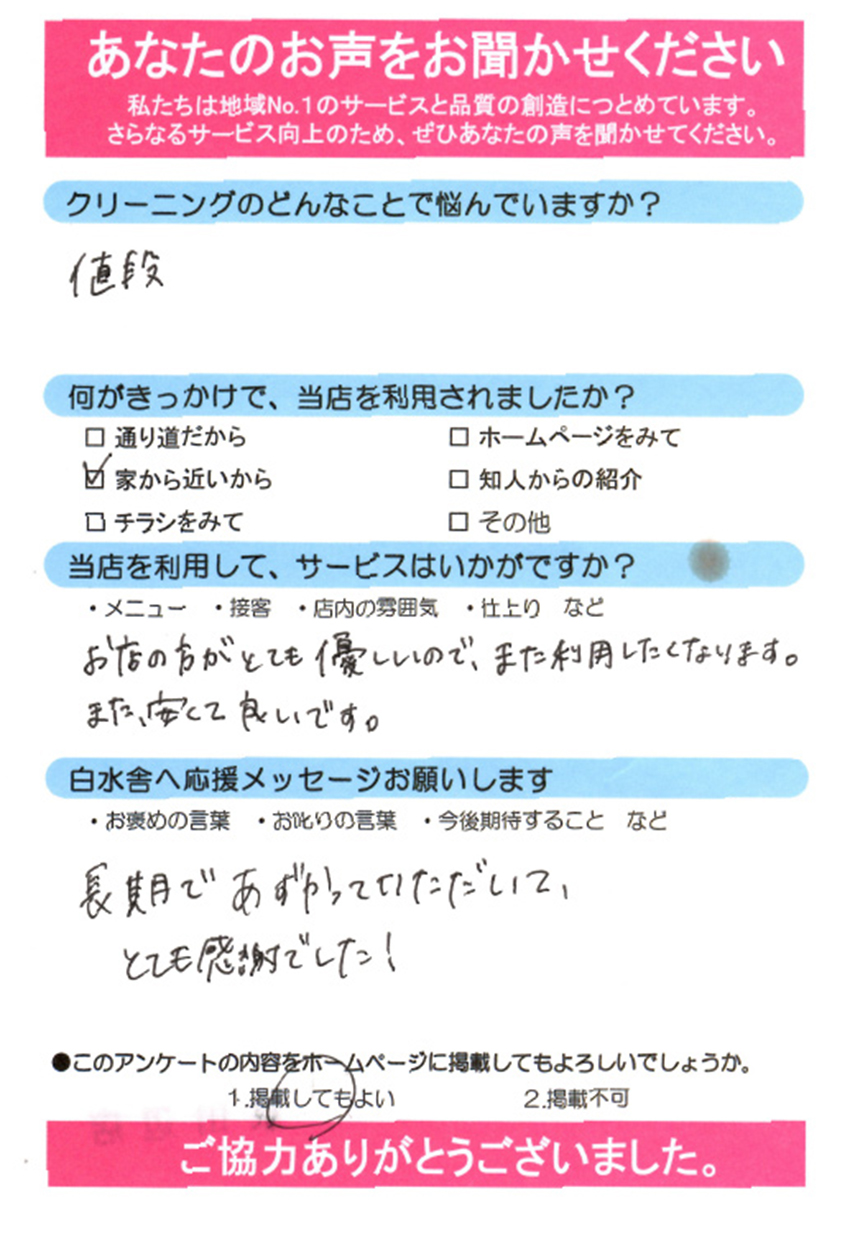 あなたのお声をお聞かせください
私たちは地域No.1のサービスと品質の創造につとめています。
さらなるサービス向上のため、ぜひあなたの声を聞かせてください。
クリーニングのどんなことで悩んでいますか？
値段
何がきっかけで、当店を利用されましたか？
□ 通り道だから □ ホームページをみて
☑ 家から近いから □ 知人からの紹介
□ チラシをみて □ その他
当店を利用して、サービスはいかがですか？
・メニュー ・接客 ・店内の雰囲気 ・仕上り など
お店の方がとても優しいので、また利用したくなります。
また、安くて良いです。
白水舎へ応援メッセージお願いします
・お褒めの言葉 ・お叱りの言葉 ・今後期待すること など
長期であずかっていただいて、
とても感謝でした！
●このアンケートの内容をホームページに掲載してもよろしいでしょうか。
1.掲載してもよい 2.掲載不可
ご協力ありがとうございました。